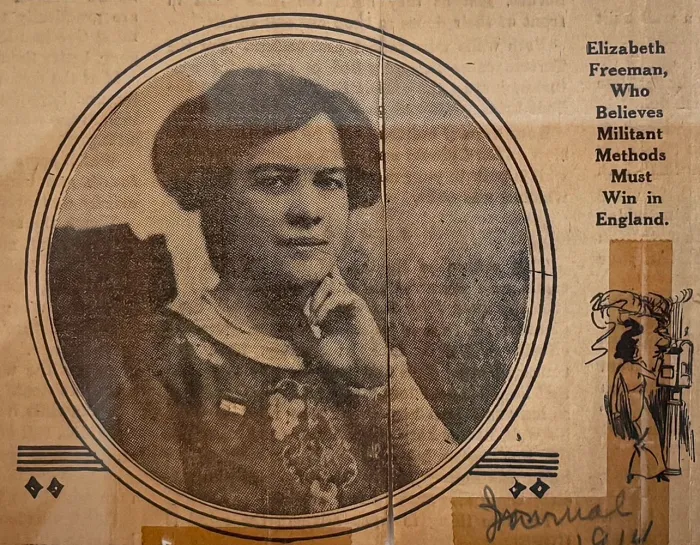 Elizabeth
Freeman,
Who
Believes
Militant
Methods
Must
Win in
England.
Journal
1914